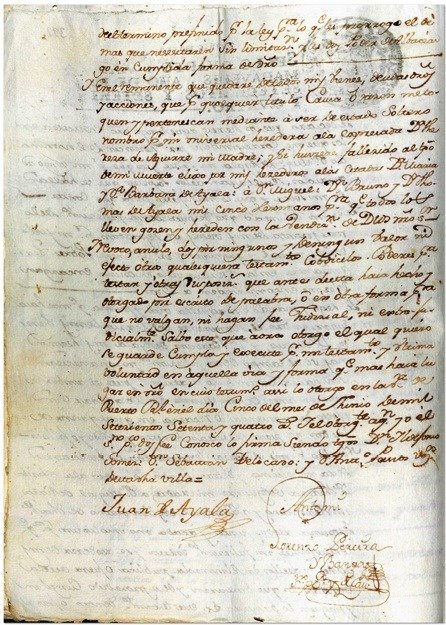 del termino prefinido pr. la ley pa. lo ql. le prorrogo el de
mas que necesitaren sin limitasn. y les doy Poder de Albaceasgo
go en Cumplida forma de Dro.
En el remanente que quedare de todos mis bienes, deudas dros.
y acciones, que pr. qualquier titulo Causa ô rason me to
quen y pertenescan mediante á ser de estado Soltero
nombro pr. mi universal heredera ala expresada Da. The
resa de Aguirre mi Madre; y si huviere fallesido al tpo.
de mi Muerte elijo por mis herederos alas Citadas Da. Maria
y Da. Barbara de Ayala: á Dn. Miguel: Dn. Bruno y Dn. Tho
mas de Ayala mis cinco hermanos pa. qe. todos lo
lleven gosen y hereden con la Vendisn. de Dios mio Sr.
Revoco, anulo, doy por ningunos y de ningun valor ni
efecto otros qualesquiera testamtos. Cobdicilos Poderes pa.
testar y otras que antes de esta haya hecho y
otorgado por escrito de palabra, ô en otra forma pa.
que no valgan, ni hagan fee Judicial, ni extraju
dicialmte. Salbo este que aora otorgo el qual quiero
se guarde Cumpla y execute pr. mi testamto. y ultima
voluntad en aquella via y forma qe. mas haya lu
gar en dro. en cuio testimo. assi lo otorgo en la de
Puerto Rl. en el dia Cinco del mes de Junio de mil
Setecientos Setenta y quatro as. Y el otorgte. aqn. yo el
doy fee Conosco lo firma siendo tgos. Dn. Ildefonso
Dn. Sebastian de Locano; y Vesos.
de esta dha villa=
Juan de Ayala
Antemi
Pereyra